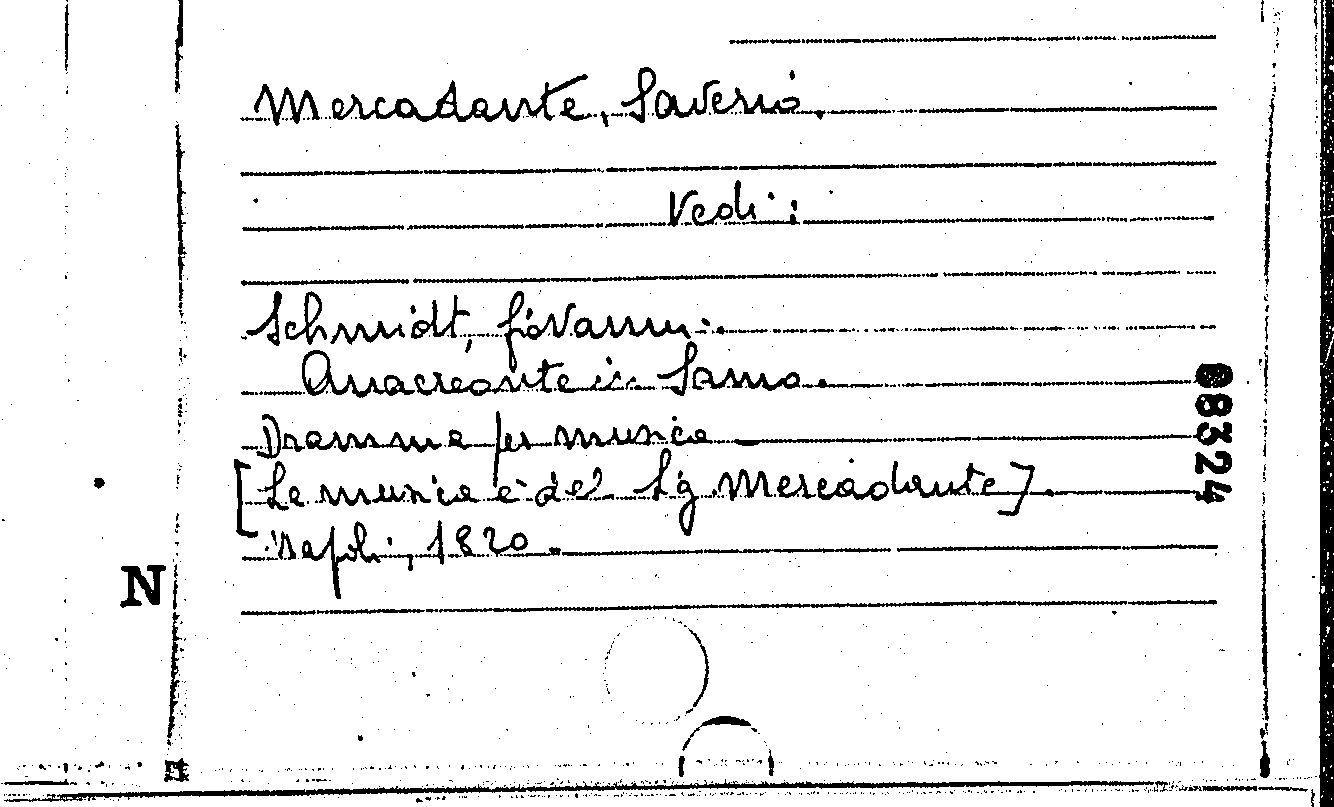 Mercadante, Saverio.
Vedi:
Schmidt, Giovanni.
Anacreonte in Samo.
Dramma per musica
[La musica è del Sig. Mercadante].
Napoli, 1820.
N
68324